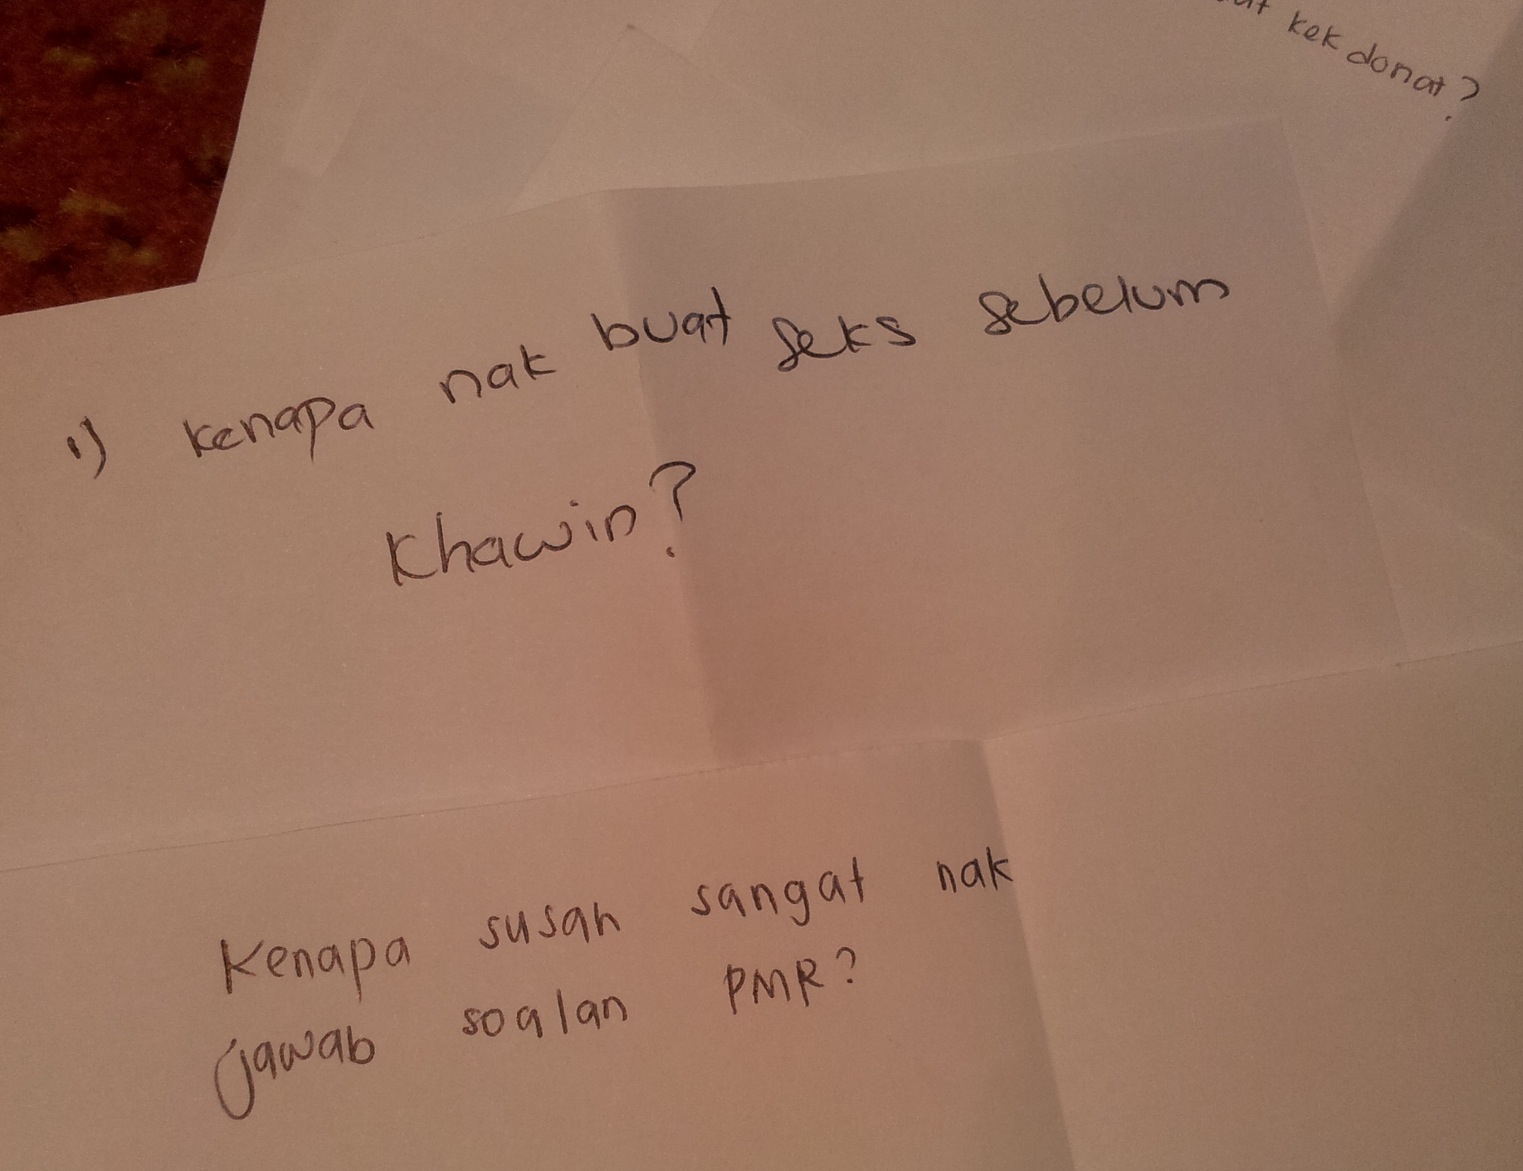 kek donat?
1) kenapa nak buat seks sebelum
Khawin?
Kenapa susah sangat nak
jawab soalan PMR?